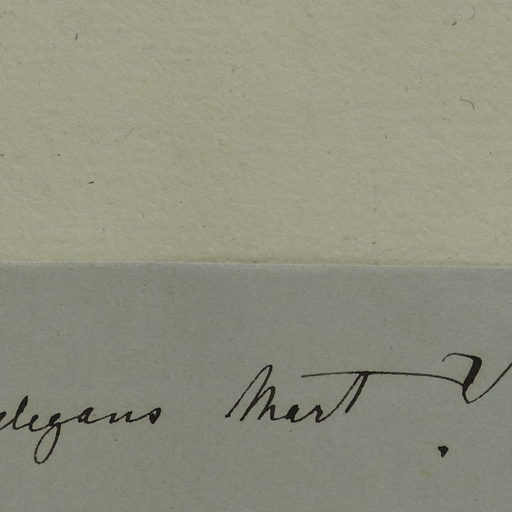 elegans Mart ?